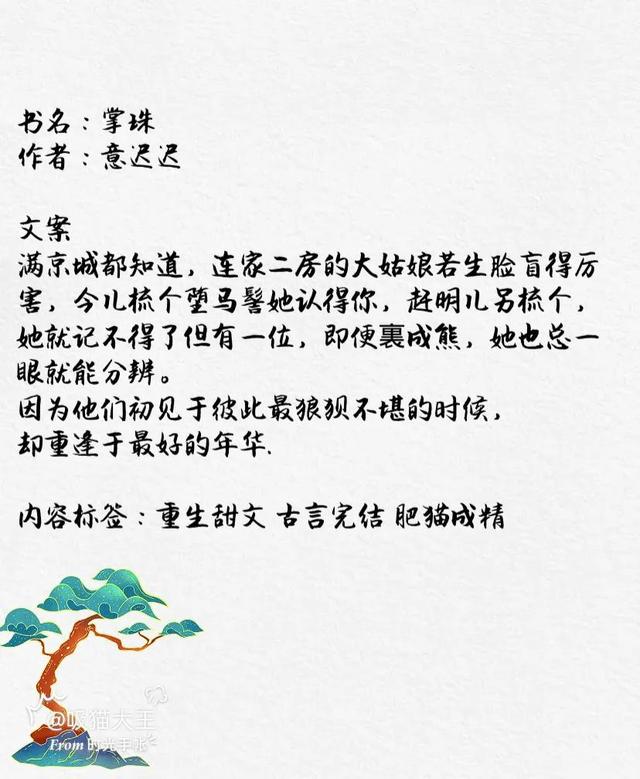 书名：掌珠
作者：意迟迟
文案
满京城都知道，连家二房的大姑娘若生脸盲得厉
害，今儿梳个堕马髻她认得你，赶明儿另梳个，
她就记不得了但有一位，即便裹成熊，她也总一
眼就能分辨。
因为他们初见于彼此最狼狈不堪的时候，
却重逢于最好的年华.
内容标签：重生甜文 古言完结 肥猫成精
@暖猫大王
From 时光手帐